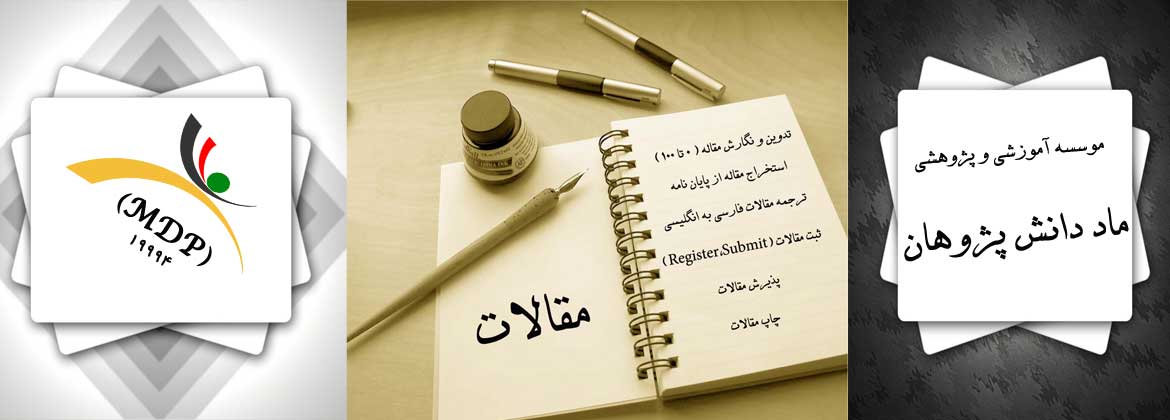 موسسه آموزشی و پژوهشی
ماد دانش پژوهان
تدوین و نگارش مقاله ( ۰ تا ۱۰۰ )
استخراج مقاله از پایان نامه
ترجمه مقالات فارسی به انگلیسی
ثبت مقالات ( Register،Submit )
پذیرش مقالات
چاپ مقالات
مقالات
(MDP)
۱۹۹۹۴